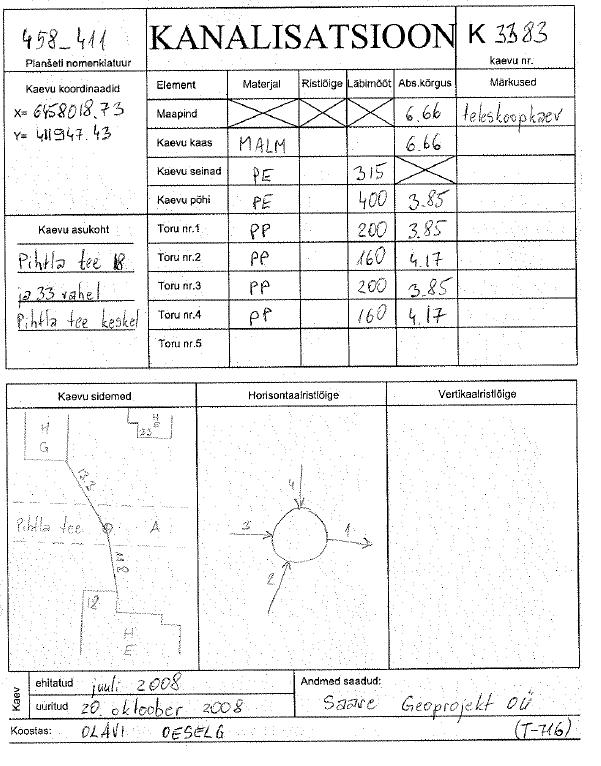 458-411 KANALISATSIOON K 3383
Planšeti nomenklatuur kaevu nr.
Kaevu koordinaadid
X= 6458018.73
Y= 411947.43
Element Materjal Ristlõige Läbimõõt Abs.kõrgus Märkused
Maapind 6.66 teleskoopkaev
Kaevu kaas MALM 6.66
Kaevu seinad PE 315
Kaevu põhi PE 400 3.85
Kaevu asukoht
Pihtla tee 18
ja 33 vahel
Pihtla tee keskel
Toru nr.1 PP 200 3.85
Toru nr.2 PP 160 4.17
Toru nr.3 PP 200 3.85
Toru nr.4 PP 160 4.17
Toru nr.5
Kaevu sidemed Horisontaalristlõige Vertikaalristlõige
H
G
H
E
33
13.3
Pihtla tee A
11.8
18
H
E
4
3
1
2
Kaev
ehitatud juuli 2008
uuritud 20. oktoober 2008
Andmed saadud:
Saare Geoprojekt OÜ
Koostas: OLAVI OESELG (T-716)